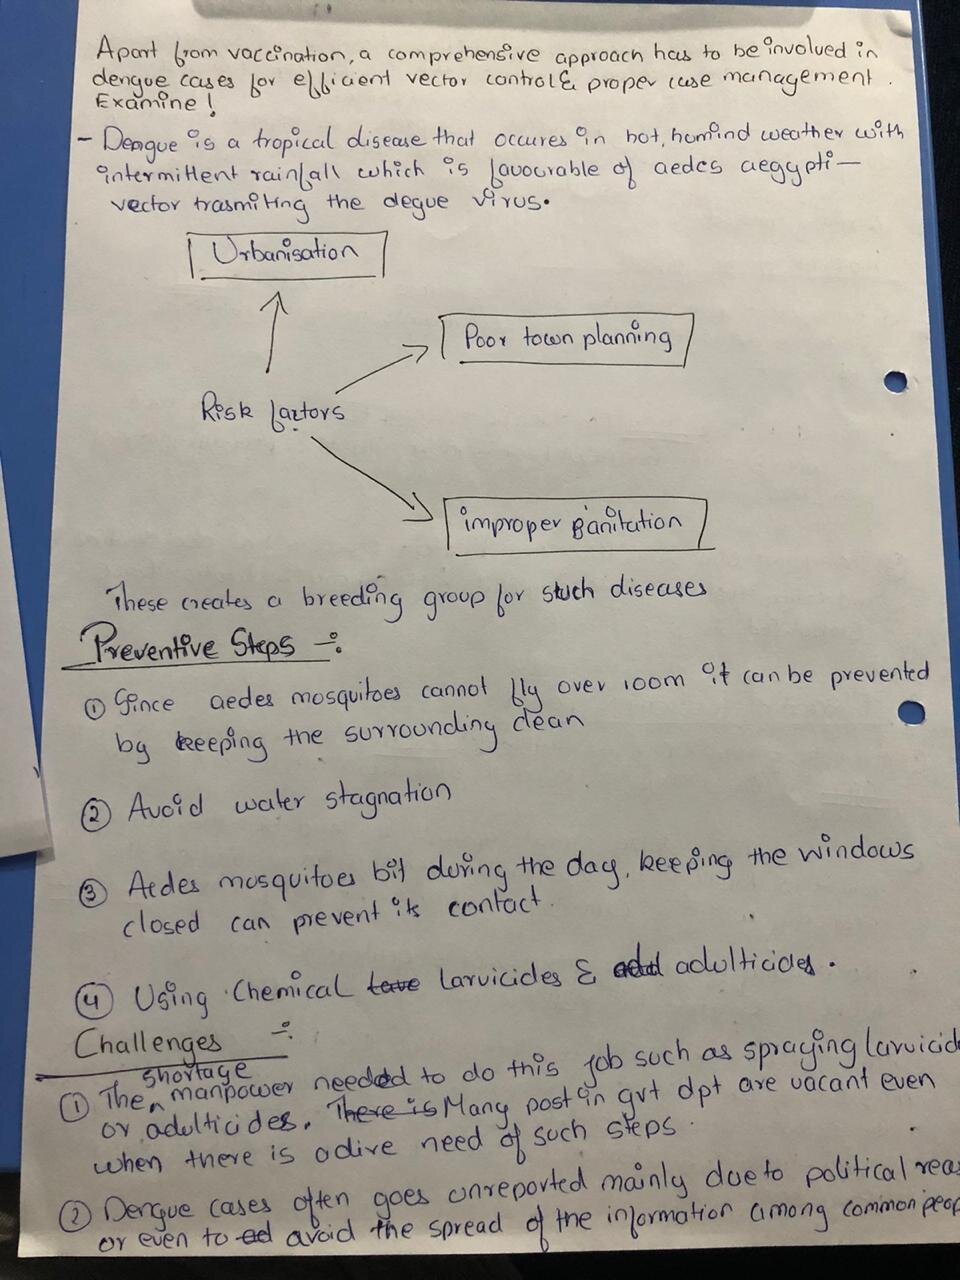 Apart from vaccination, a comprehensive approach has to be involved in
dengue cases for efficient vector control & proper case management.
Examine!
- Dengue is a tropical disease that occures in hot, humind weather with
intermittent rainfall which is favourable of aedes aegypti —
vector trasmiting the degue virus.
Urbanisation
Poor town planning
Risk factors
improper sanitation
These creates a breeding group for such diseases
Preventive Steps -:
① Since aedes mosquitoes cannot fly over 100m it can be prevented
by keeping the surrounding clean
② Avoid water stagnation
③ Aedes mosquitoes bit during the day, keeping the windows
closed can prevent its contact.
④ Using Chemical larvicides & adulticides.
Challenges -:
shortage
① The manpower needed to do this job such as spraying larvicid
or adulticides. There is Many post in gvt dpt are vacant even
when there is a dire need of such steps.
② Dengue cases often goes unreported mainly due to political reas
or even to avoid the spread of the information among common peop